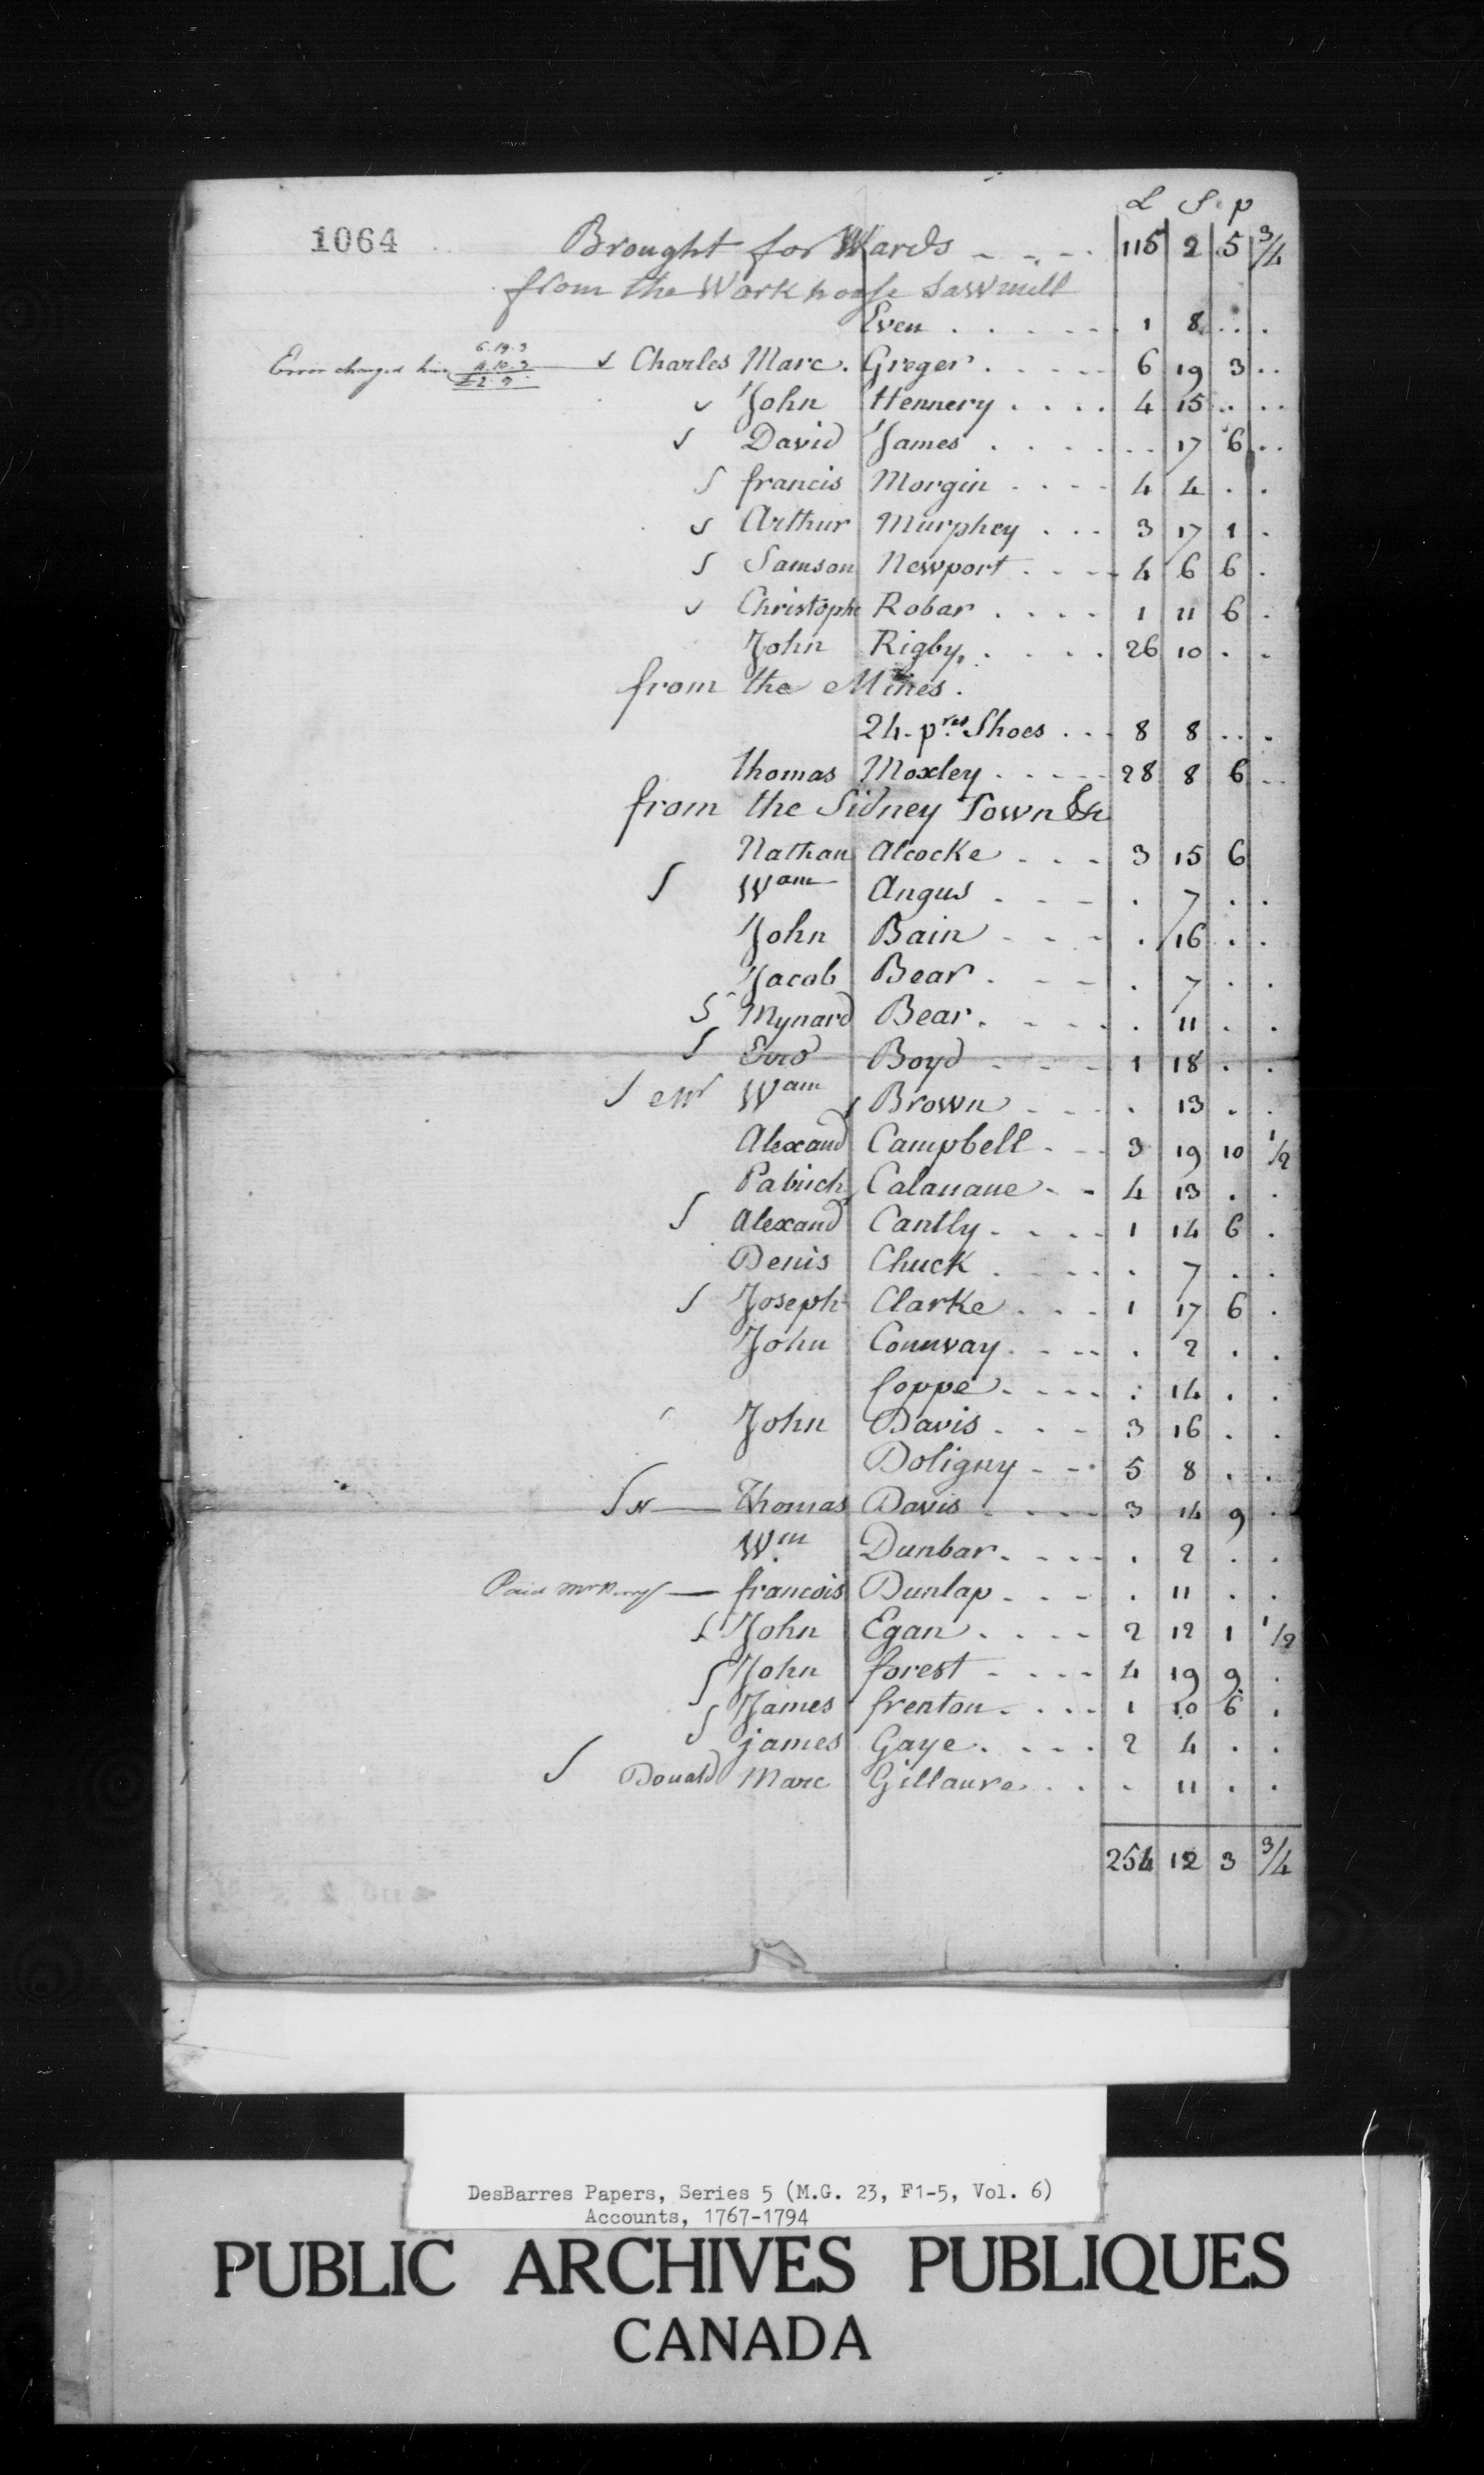 L S p
1064 Brought for Wards 115 2 5 3/4
from the Work house Sawmill
Even 1 8
6.19.3
Error charged him 4.10.3 Charles Marc. Greger 6 19 3
£2.9.
John Hennery 4 15
David James 17 6
francis Morgin 4 4
Arthur Murphey 3 17 1
Samson Newport 4 6 6
Christophe Robar 1 11 6
John Rigby 26 10
from the Mines.
24 prs Shoes 8 8
thomas Moxley 28 8 6
from the Sidney Town &c
Nathan Alcocke 3 15 6
Wam Angus 7
John Bain 16
Jacob Bear 7
Mynard Bear 11
Boyd 1 18
Mr Wam Brown 13
Alexand Campbell 3 19 10 1/2
Patrick Calanane 4 13
Alexand Cantly 1 14 6
Denis Chuck 7
Joseph Clarke 1 17 6
John Connvay 2
Coppe 14
John Davis 3 16
Doligny 5 8
N Thomas Davis 3 14 9
Wm Dunbar 2
Paid Mr francois Dunlap 11
John Egan 2 12 1 1/2
John forest 4 19 9
James frenton 1 10 6
james Gaye 2 4
Donald Marc Gillaure 11
254 12 3 3/4
DesBarres Papers, Series 5 (M.G. 23, F1-5, Vol. 6)
Accounts, 1767-1794
PUBLIC ARCHIVES PUBLIQUES
CANADA